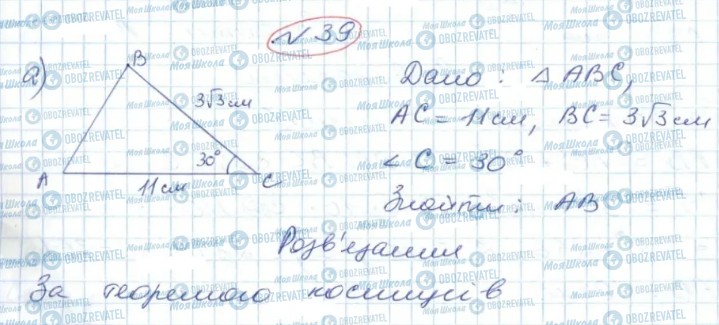 № 39
а)
B
3√3 см
30°
A
11 см
C
Дано: △ ABC,
AC = 11 см, BC = 3√3 см
∠ C = 30°
Знайти: AB
Розв'язання
За теоремою косинусів
МояШкола OBOZREVATEL